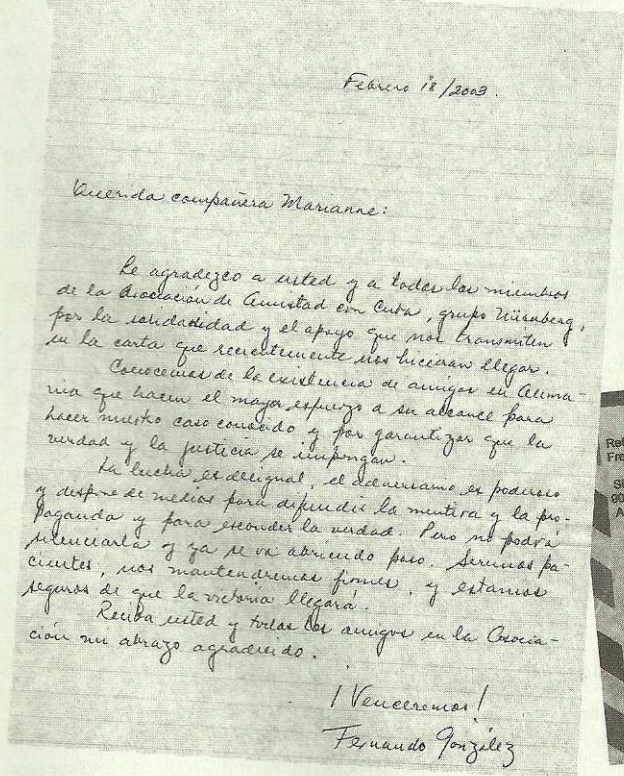 Febrero 18/2003.
Querida compañera Marianne:
Le agradezco a usted y a todos los miembros
de la Asociación de Amistad con Cuba, grupo Nürnberg,
por la solidaridad y el apoyo que nos transmiten
en la carta que recientemente nos hicieran llegar.
Conocemos de la existencia de amigos en Alema-
nia que hacen el mayor esfuerzo a su alcance para
hacer nuestro caso conocido y por garantizar que la
verdad y la justicia se impongan.
La lucha es desigual, el adversario es poderoso
y dispone de medios para difundir la mentira y la pro-
paganda y para esconder la verdad. Pero no podrá
silenciarla y ya se va abriendo paso. Seremos pa-
cientes, nos mantendremos firmes, y estamos
seguros de que la victoria llegará.
Reciba usted y todos los amigos en la Asocia-
ción un abrazo agradecido.
¡Venceremos!
Fernando González